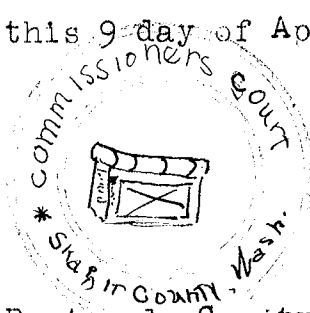 this 9 day of Ap
Commissioners Court
* Skagit County, Wash.